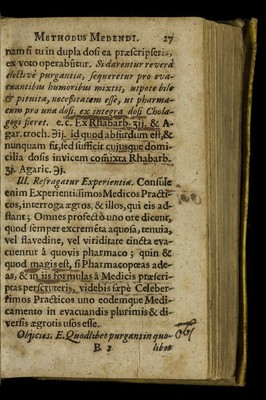 METHODUS MEDENDI. 27
nam si tu in dupla dosi ea præscripseris,
ex voto operabũtur. Si darentur reverâ
electivè purgantia, sequeretur pro eva-
cuantibus humoribus mixtis, utpote bile
& pituita, necessitatem esse, ut pharma-
cum pro una dosi, ex integra dosi Chola-
gogi fieret. e. c. Ex Rhabarb. ʒij. & A-
gar. troch. ℈ij. id quod absurdum est, &
nunquam fit, sed sufficit cujusque domi-
cilia dosis invicem com̃ixta Rhabarb.
ʒj. Agaric. ℈j.
III. Refragatur Experientia. Consule
enim Experientissimos Medicos Practi-
cos, interroga ægros, & illos, qui eis ad-
stant; Omnes profectò uno ore dicent,
quod semper excremẽta aquosa, tenuia,
vel flavedine, vel viriditate tincta eva-
cuentur â quovis pharmaco; quin &
quod magis est, si Pharmacopœas ade-
as, & in iis formulas à Medicis præscri-
ptas perscruteris, videbis sæpè Celeber-
rimos Practicos uno eodemque Medi-
camento in evacuandis plurimis & di-
versis ægrotis usos esse.
Objicies. E. Quodlibet purgans in quo-
B 2 libet